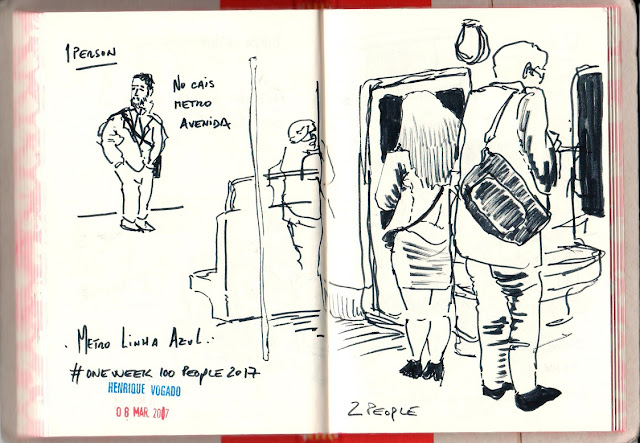 1 PERSON
NO CAIS
METRO
AVENIDA
. METRO LINHA AZUL..
#ONE WEEK 100 PEOPLE 2017
HENRIQUE VOGADO
08 MAR. 2017
2 PEOPLE